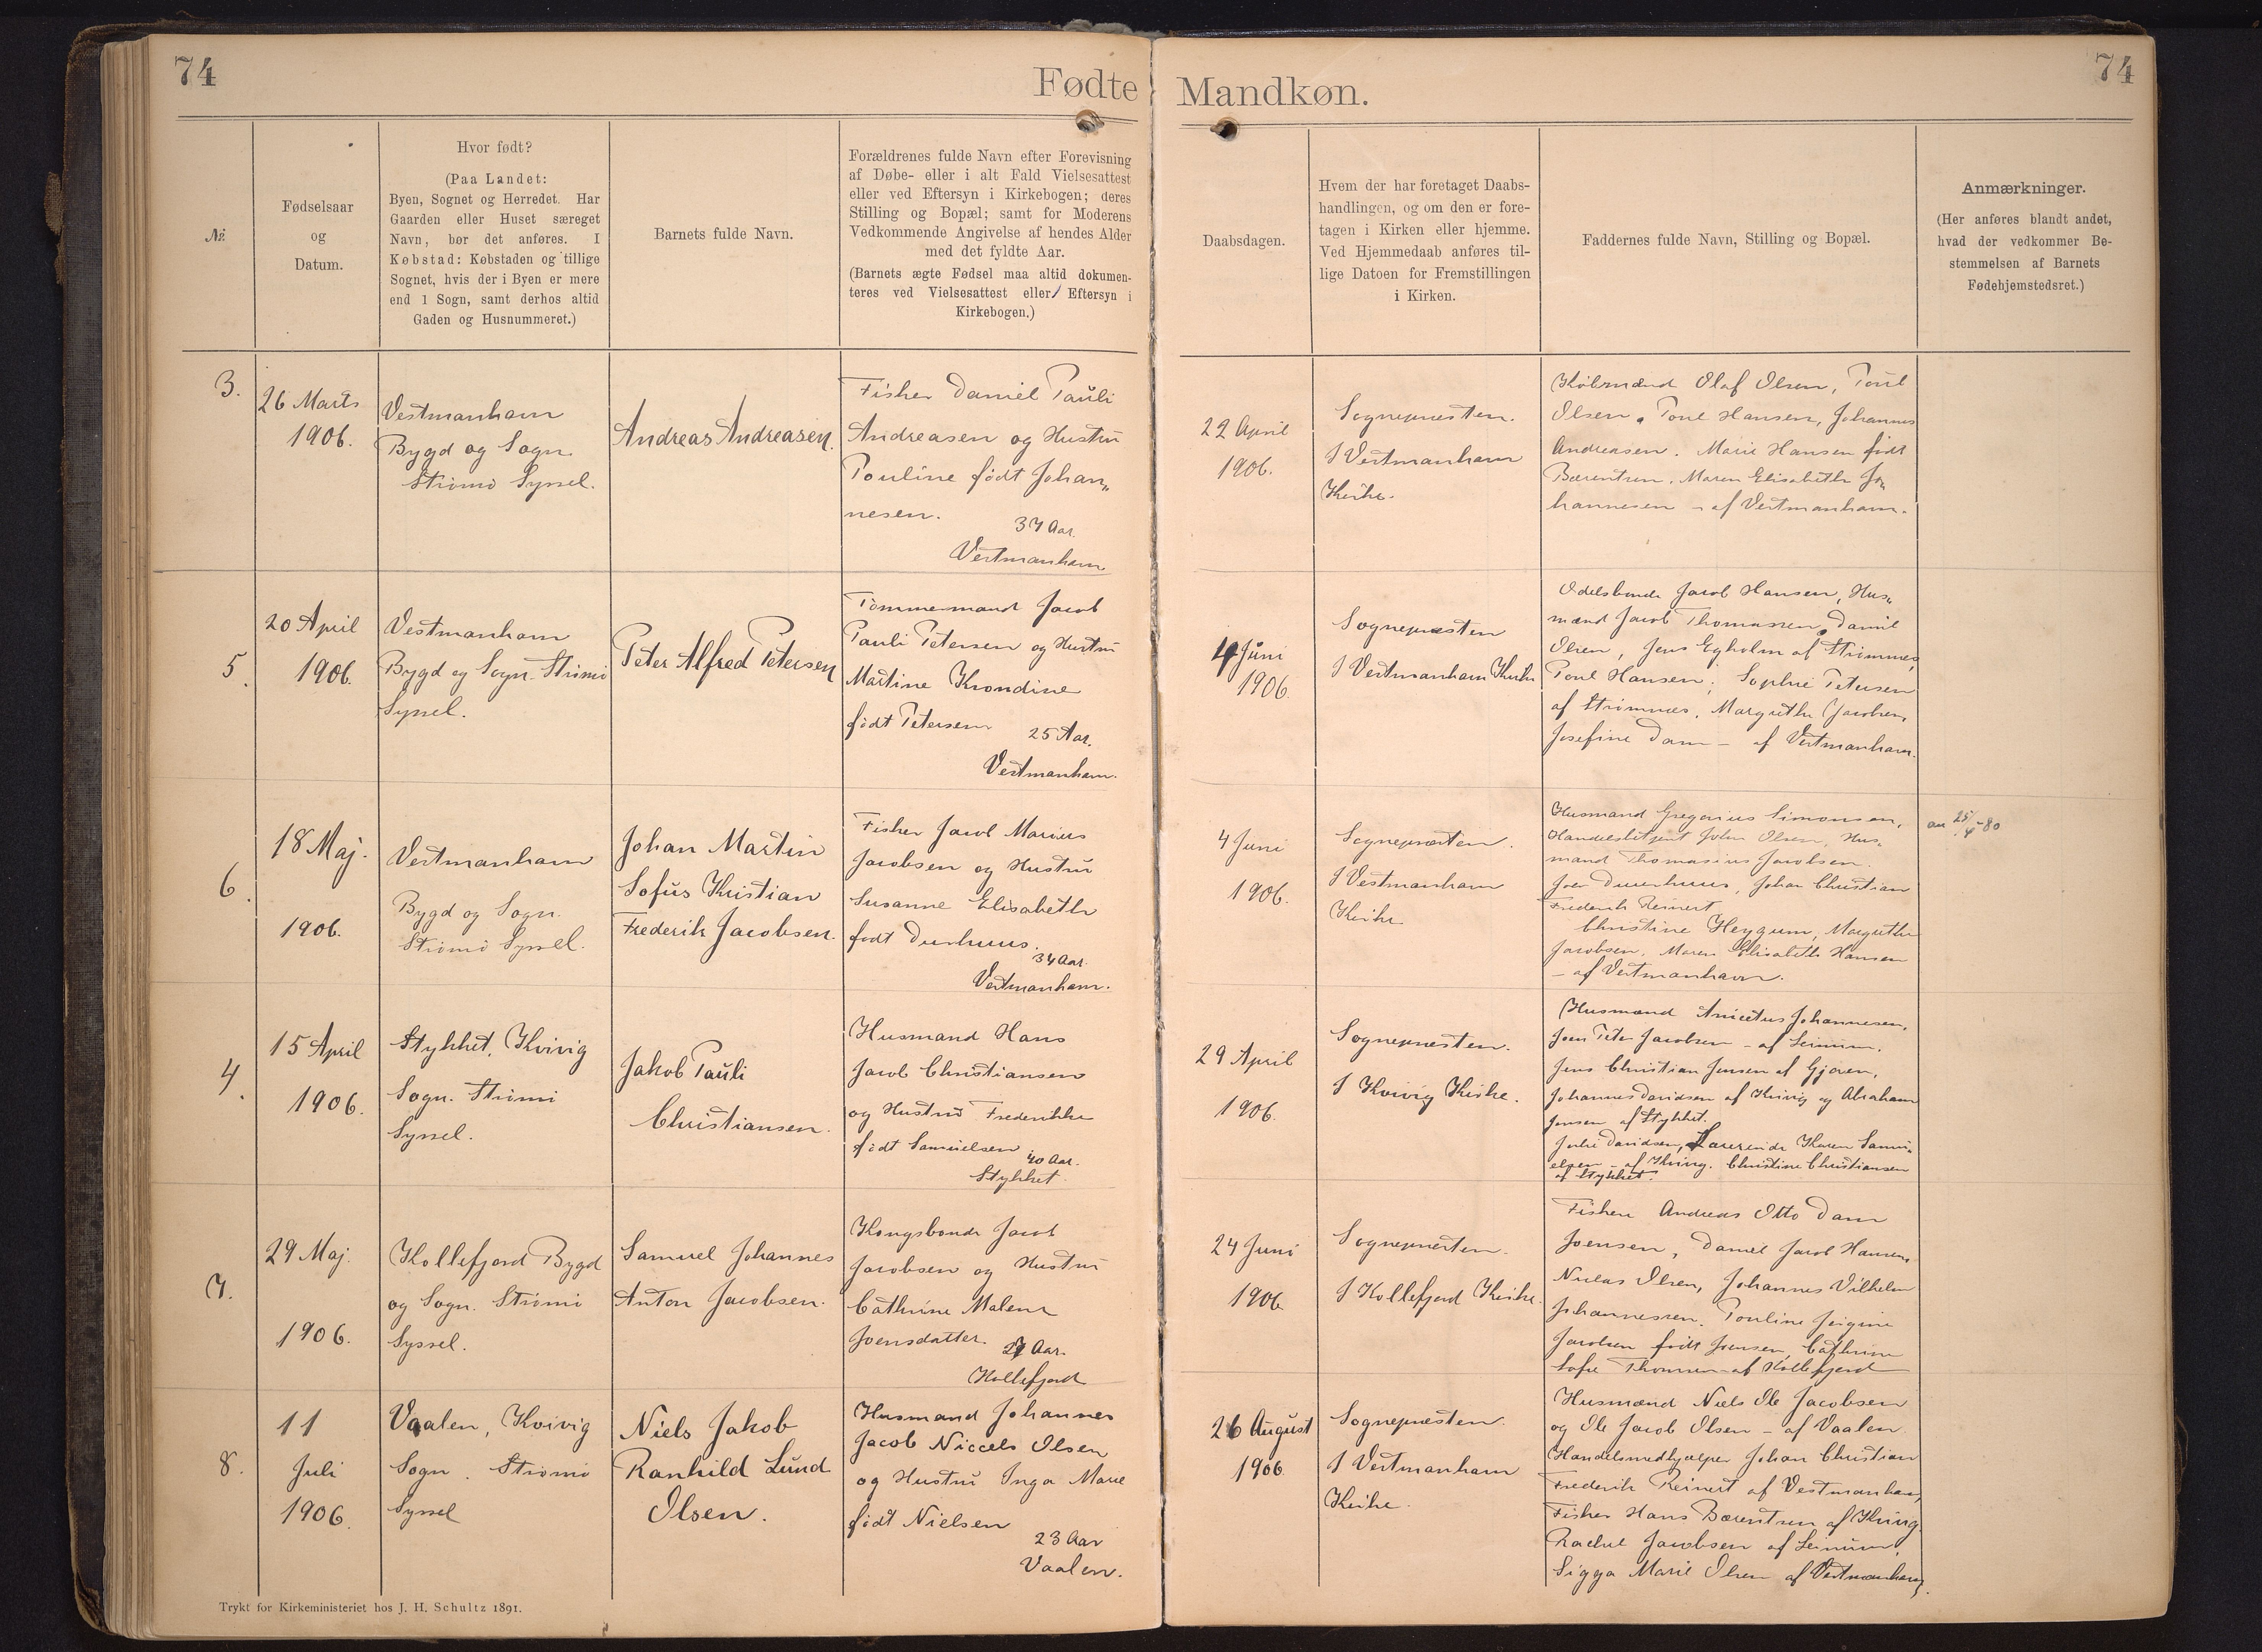 74
Fødte
Mandkøn.
74
№
Fødselsaar
og
Datum.
Hvor født?
(Paa Landet:
Byen, Sognet og Herredet. Har
Gaarden eller Huset særeget
Navn, bør det anføres. I
Købstad: Købstaden og tillige
Sognet, hvis der i Byen er mere
end 1 Sogn, samt derhos altid
Gaden og Husnummeret.)
Barnets fulde Navn.
Forældrenes fulde Navn efter Forevisning
af Døbe- eller i alt Fald Vielsesattest
eller ved Eftersyn i Kirkebogen; deres
Stilling og Bopæl; samt for Moderens
Vedkommende Angivelse af hendes Alder
med det fyldte Aar.
(Barnets ægte Fødsel maa altid dokumen-
teres ved Vielsesattest eller Eftersyn i
Kirkebogen.)
Daabsdagen.
Hvem der har foretaget Daabs-
handlingen, og om den er fore-
tagen i Kirken eller hjemme.
Ved Hjemmedaab anføres til-
lige Datoen for Fremstillingen
i Kirken.
Faddernes fulde Navn, Stilling og Bopæl.
Anmærkninger.
(Her anføres blandt andet,
hvad der vedkommer Be-
stemmelsen af Barnets
Fødehjemstedsret.)
3.
26 Marts
1906.
Vestmanhavn
Bygd og Sogn
Strømø Syssel.
Andreas Andreasen.
Fisker Daniel Pauli
Andreasen og Hustru
Pouline født Johan„
nesen.
37 Aar.
Vestmanhavn
22 April
1906.
Sognepræsten.
I Vestmanhavn
Kirke.
Købmænd Olaf Olsen, Poul
Olsen, Poul Hansen, Johannes
Andreasen. Marie Hansen født
Bærentsen, Maren Elisabeth Jo„
hannesen – af Vestmanhavn.
5.
20 April
1906.
Vestmanhavn
Bygd og Sogn. Strømø
Syssel.
Peter Alfred Petersen
Tømmermand Jacob
Pauli Petersen og Hustru
Martine Krondine
født Petersen
25 Aar.
Vestmanhavn.
4 Juni
1906.
Sognepræsten
I Vestmanhavn Kirke
Odelsbonde Jacob Hansen, Hus„
mænd Jacob Thomassen, Daniel
Olsen, Jens Egholm af Strømnes,
Poul Hansen; Sophie Petersen
af Strømnes, Margrethe Jacobsen,
Josefine Dam – af Vestmanhavn.
6.
18 Maj.
1906.
Vestmanhavn
Bygd og Sogn.
Strømø Syssel.
Johan Martin
Sofus Kristian
Frederik Jacobsen.
Fisker Jacob Marius
Jacobsen og Hustru
Susanne Elisabeth
født Durhuus.
34 Aar.
Vestmanhavn.
4 Juni
1906.
Sognepræsten.
I Vestmanhavn
Kirke
Husmand Gregorius Simonsen,
Handelsbetjent John Olsen, Hus„
mand Thomasius Jacobsen.
Joen Duurhuus, Johan Christian
Frederik Reinert
Christine Heygum, Margrethe
Jacobsen, Maren Elisabeth Hansen
– af Vestmanhavn.
25/4-80
4.
15 April
1906.
Stykket, Kvivig
Sogn. Strømø
Syssel.
Jakob Pauli
Christiansen.
Husmand Hans
Jacob Christiansen
og Hustru Frederikke
født Samuelsen
40 Aar.
Stykket.
29 April
1906.
Sognepræsten.
I Kvivig Kirke.
Husmænd Anicetus Johannesen,
Joen Peter Jacobsen – af Leinum.
Jens Christian Jensen af Gjoven,
Johannes Davidsen af Kvivig og Abraham
Jensen af Stykket.
Davidsen, Karen Samu„
elsen – af Kvivig. Christine Christiansen
af Stykket.
7.
29 Maj.
1906.
Kollefjord Bygd
og Sogn. Strømø
Syssel.
Samuel Johannes
Anton Jacobsen.
Kongsbonde Jacob
Jacobsen og Hustru
Cathrine Malene
Joensdatter.
27 Aar.
Kollefjord
24 Juni
1906
Sognepræsten.
I Kollefjord Kirke.
Fiskere Andreas Otto Dam
Joensen, Daniel Jacob Hansen,
Niclas Olsen, Johannes Vilhelm
Johannessen. Pouline
Jacobsen født Joensen, Cathrine
Sofie Thomsen af Kollefjord
8.
11
Juli
1906.
Vaalen, Kvivig
Sogn. Strømø
Syssel
Niels Jakob
Ranhild Lund
Olsen.
Husmand Johannes
Jacob Niccels Olsen
og Hustru Inga Marie
født Nielsen
23 Aar
Vaalen.
26 August
1906.
Sognepræsten.
I Vestmanhavn
Kirke.
Husmænd Niels Ole Jacobsen
og Ole Jacob Olsen – af Vaalen.
Handelsmedhjælper Johan Christian
Frederik Reinert af Vestmanhavn,
Fisker Hans Bærentsen af Kvivig.
Rachel Jacobsen af Leinum,
Sigga Marie Olsen af Vestmanhavn.
Trykt for Kirkeministeriet hos J. H. Schultz 1891.